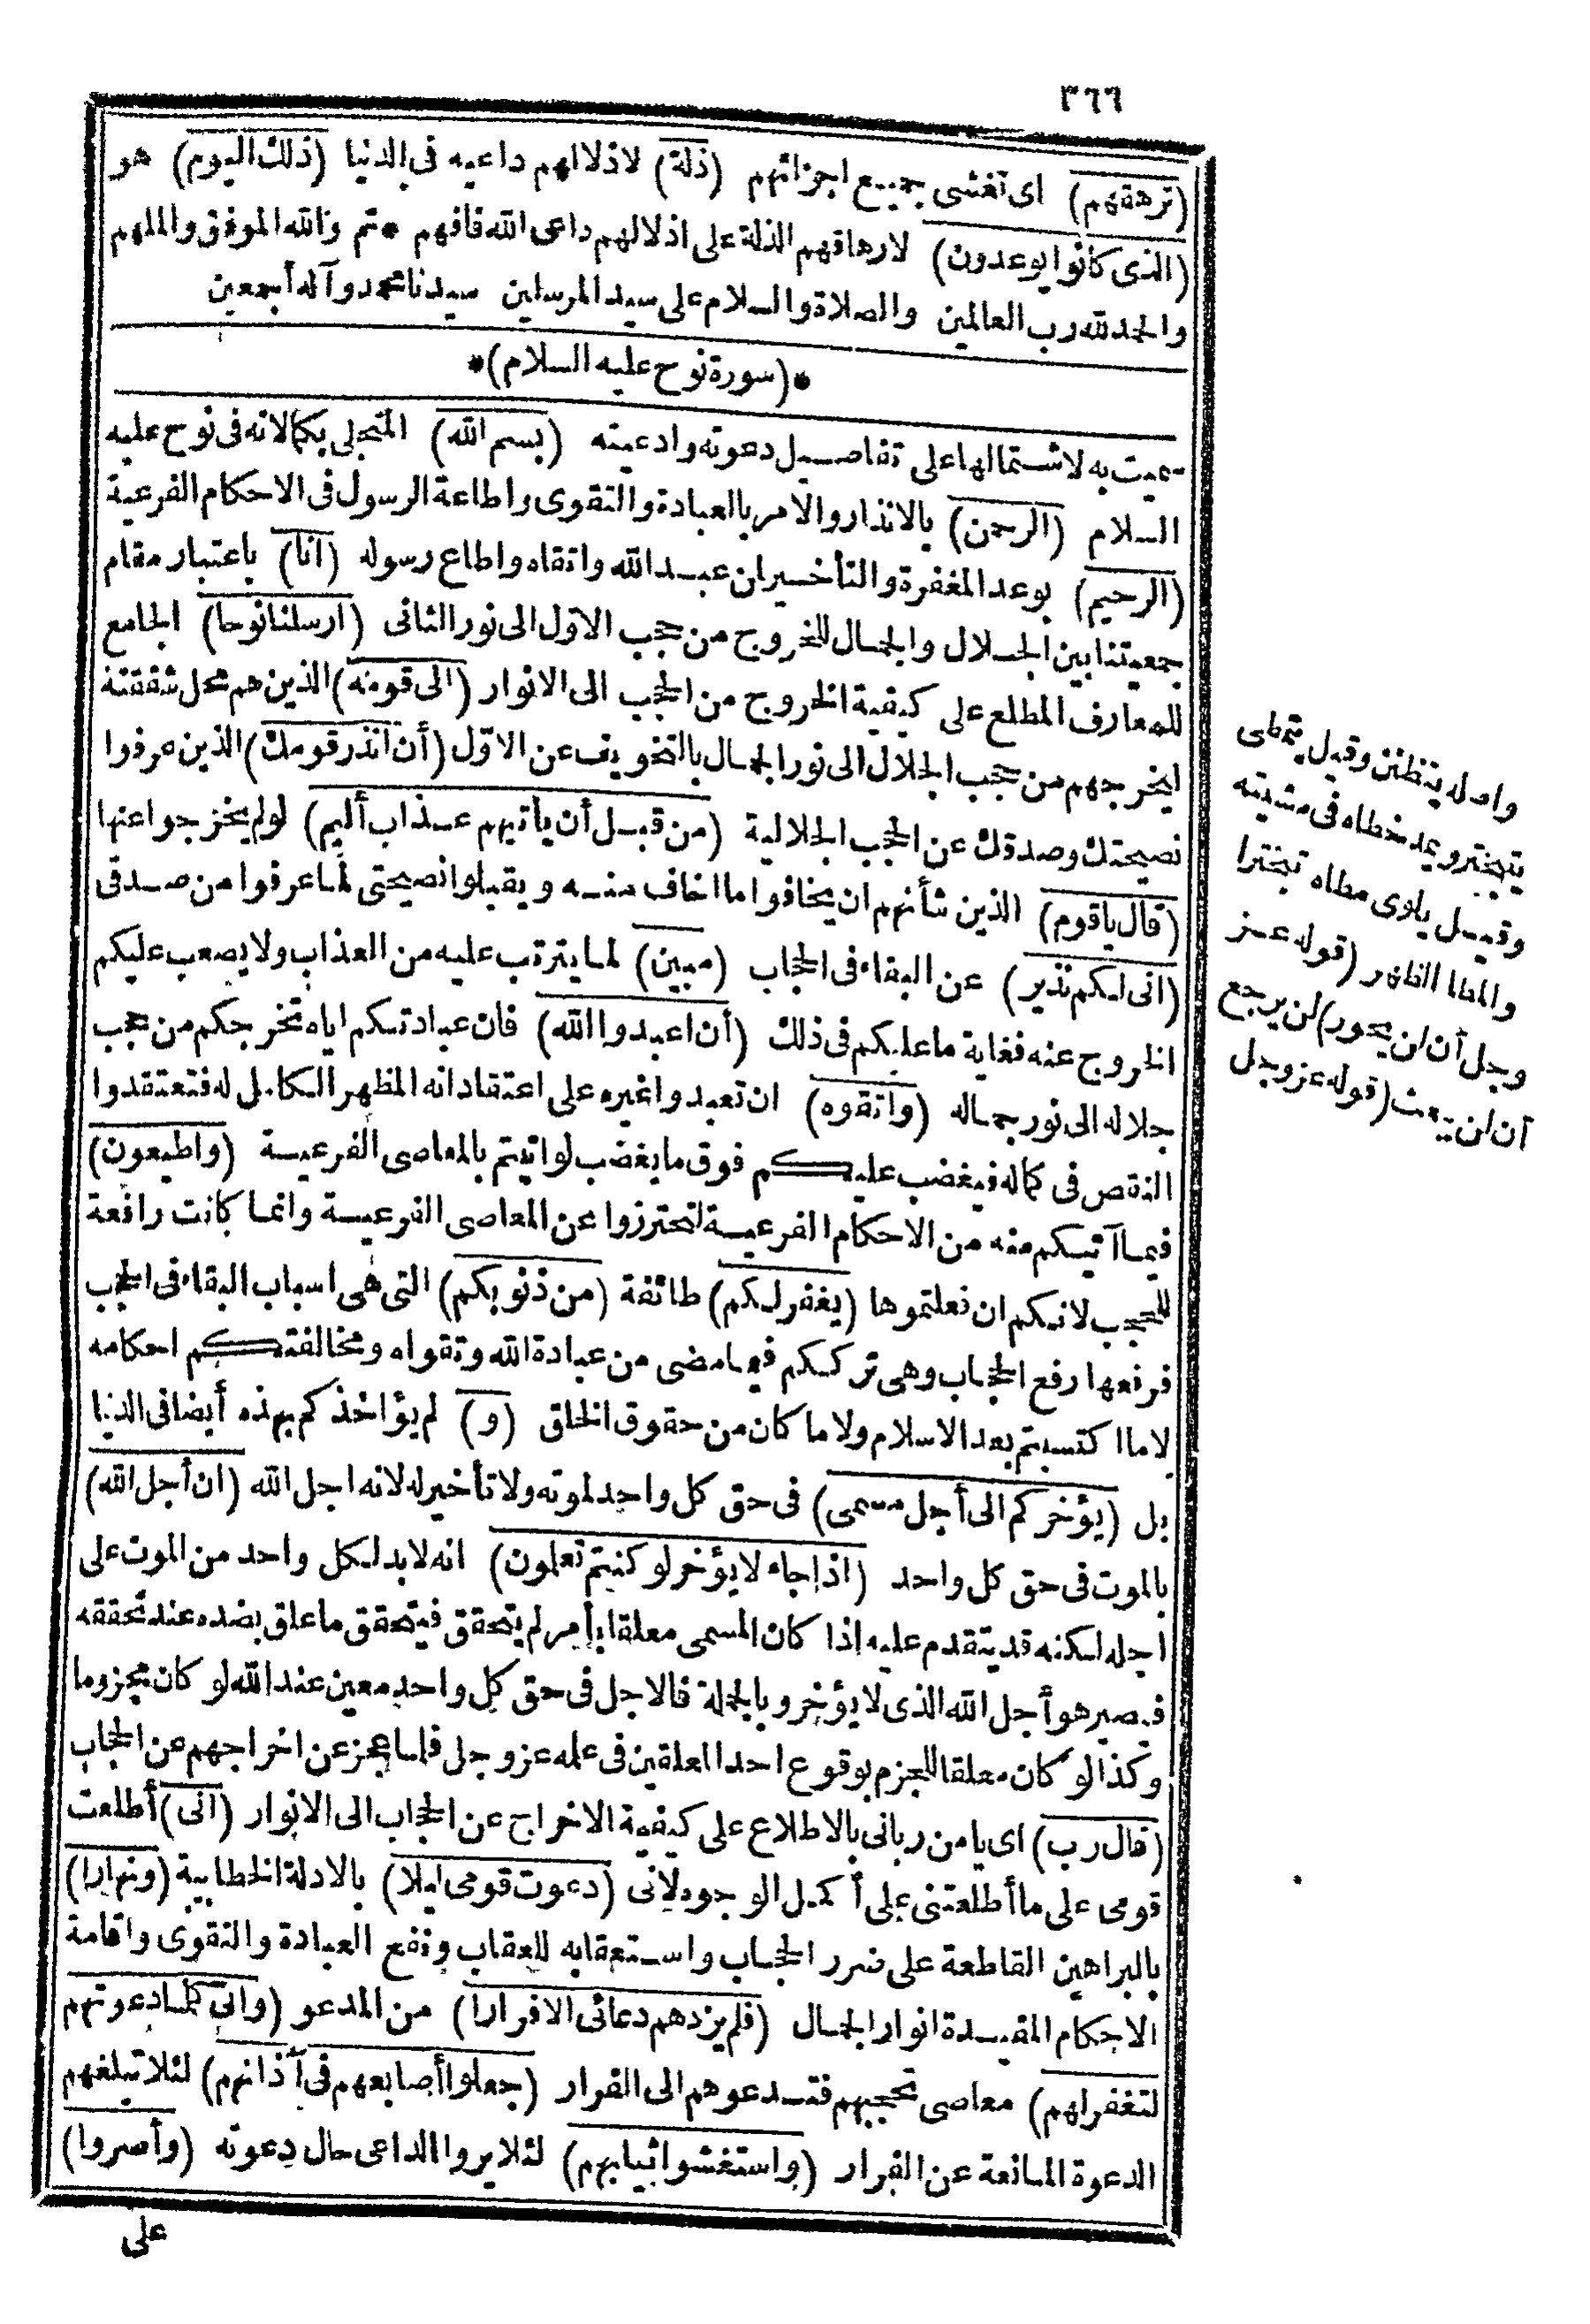 ٣٦٦
(ترهقهم) اى تغشى جميع اجزائهم (ذلة) لاذلالهم داعيه فى الدنيا (ذلك اليوم) هو
(الذى كانوا يوعدون) لارهاقهم الذلة على اذلالهم داعى الله فافهم * تم والله الموفق والملهم
والحمد لله رب العالمين والصلاة والسلام على سيد المرسلين سيدنا محمد وآله أجمعين
*(سورة نوح عليه السلام)*
سميت به لاشتمالها على تفاصيل دعوته وادعيته (بسم الله) المتجلى بكمالاته فى نوح عليه
السلام (الرحمن) بالانذار والامر بالعبادة والتقوى واطاعة الرسول فى الاحكام الفرعية
(الرحيم) بوعد المغفرة والتأخير ان عبد الله واتقاه واطاع رسوله (انا) باعتبار مقام
جمعيتنا بين الجلال والجمال للخروج من حجب الاول الى نور الثانى (ارسلنا نوحا) الجامع
للمعارف المطلع على كيفية الخروج من الحجب الى الانوار (الى قومه) الذين هم محل شفقته
ليخرجهم من حجب الجلال الى نور الجمال بالتخويف عن الاول (أن انذر قومك) الذين عرفوا
نصيحتك وصدقك عن الحجب الجلالية (من قبل أن يأتيهم عذاب أليم) لو لم يخرجوا عنها
(قال ياقوم) الذين شأنهم ان يخافوا ما اخاف منه ويقبلوا نصيحتى لما عرفوا من صدقى
(انى لكم نذير) عن البقاء فى الحجاب (مبين) لما يترتب عليه من العذاب ولا يصعب عليكم
الخروج عنه فغاية ما عليكم فى ذلك (أن اعبدوا الله) فان عبادتكم اياه تخرجكم من حجب
جلاله الى نور جماله (واتقوه) ان تعبدوا غيره على اعتقاد انه المظهر الكامل له فتعتقدوا
النقص فى كماله فيغضب عليكم فوق ما يغضب لو اتيتم بالمعاصى الفرعية (واطيعون)
فيما آتيكم منه من الاحكام الفرعية لتحترزوا عن المعاصى الفرعية وانما كانت رافعة
للحجب لانكم ان فعلتموها (يغفر لكم) طائفة (من ذنوبكم) التى هى اسباب البقاء فى الحجب
فرفعها رفع الحجاب وهى ترككم فيما مضى من عبادة الله وتقواه ومخالفتكم احكامه
لا ما اكتسبتم بعد الاسلام ولا ما كان من حقوق الخلق (و) لم يؤاخذكم بهذه أيضا فى الدنيا
بل (يؤخركم الى أجل مسمى) فى حق كل واحد لموته ولا تأخير له لانه اجل الله (ان أجل الله)
بالموت فى حق كل واحد (اذا جاء لا يؤخر لو كنتم تعلمون) انه لا بد لكل واحد من الموت على
اجله لكنه قد يتقدم عليه اذا كان المسمى معلقا بأمر لم يتحقق فيتحقق ما علق بضده عند تحققه
فيصير هو أجل الله الذى لا يؤخر وبالجملة فالاجل فى حق كل واحد معين عند الله لو كان مجزوما
وكذا لو كان معلقا للجزم بوقوع احد المعلقين فى علمه عز وجل فلما عجز عن اخراجهم عن الحجاب
(قال رب) اى يا من ربانى بالاطلاع على كيفية الاخراج عن الحجاب الى الانوار (انى) أطلعت
قومى على ما أطلعتنى على أكمل الوجوه لانى (دعوت قومى ليلا) بالادلة الخطابية (ونهارا)
بالبراهين القاطعة على ضرر الحجاب واستعقابه للعقاب ونفع العبادة والتقوى واقامة
الاحكام المقيدة انوار الجمال (فلم يزدهم دعائى الا فرارا) من المدعو (وانى كلما دعوتهم
لتغفر لهم) معاصى تحجبهم فتدعوهم الى الفرار (جعلوا أصابعهم فى آذانهم) لئلا تبلغهم
الدعوة المانعة عن الفرار (واستغشوا ثيابهم) لئلا يروا الداعى حال دعوته (وأصروا)
على
واصله يتظنن وقيل يتمطى
يتبختر ويمد خطاه فى مشيته
وقيل يلوى مطاه تبخترا
والمطا الظهر (قوله عز
وجل أن لن يحور) لن يرجع
أن لن يبعث (قوله عز وجل